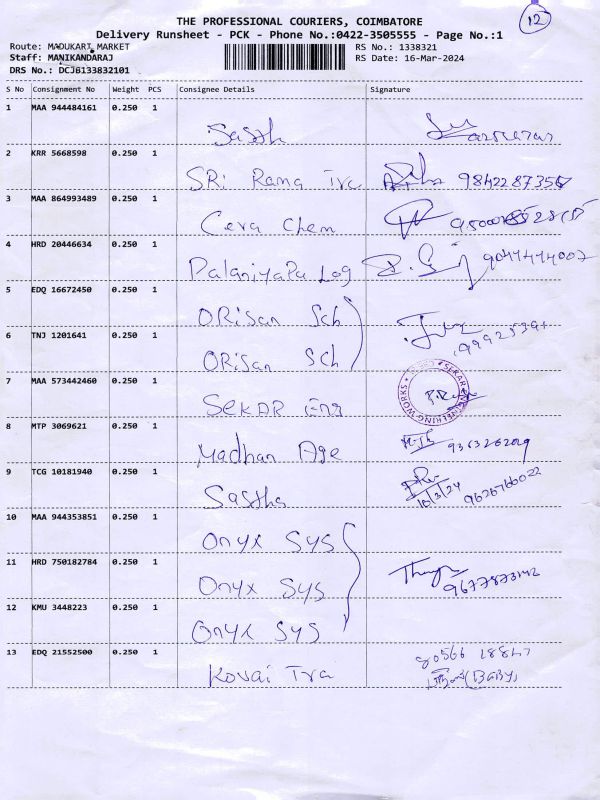 12
THE PROFESSIONAL COURIERS, COIMBATORE
Delivery Runsheet - PCK - Phone No.:0422-3505555 - Page No.:1
Route: MADUKARI MARKET
RS No.: 1338321
Staff: MANIKANDARAJ
RS Date: 16-Mar-2024
DRS No.: DCJB133832101
S No Consignment No Weight PCS Consignee Details Signature
1 MAA 944484161 0.250 1
Sasth
2 KRR 5668598 0.250 1
SRi Rama Tra
3 MAA 864993489 0.250 1
Ceva Chem
4 HRD 20446634 0.250 1
Palaniyapa Log
5 EDQ 16672450 0.250 1
ORisan Sch
6 TNJ 1201641 0.250 1
ORisan Sch
7 MAA 573442460 0.250 1
SEKAR Eng
SEKAR ENGINEERING WORKS
8 MTP 3069621 0.250 1
Madhan Age
9 TCG 10181940 0.250 1
Sastha
16/3/24
10 MAA 944353851 0.250 1
Onyx Sys
11 HRD 750182784 0.250 1
Onyx Sys
12 KMU 3448223 0.250 1
Onyx Sys
13 EDQ 21552500 0.250 1
Kovai Tra
(BABY)